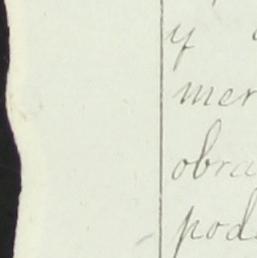 y
mer
obra
pod